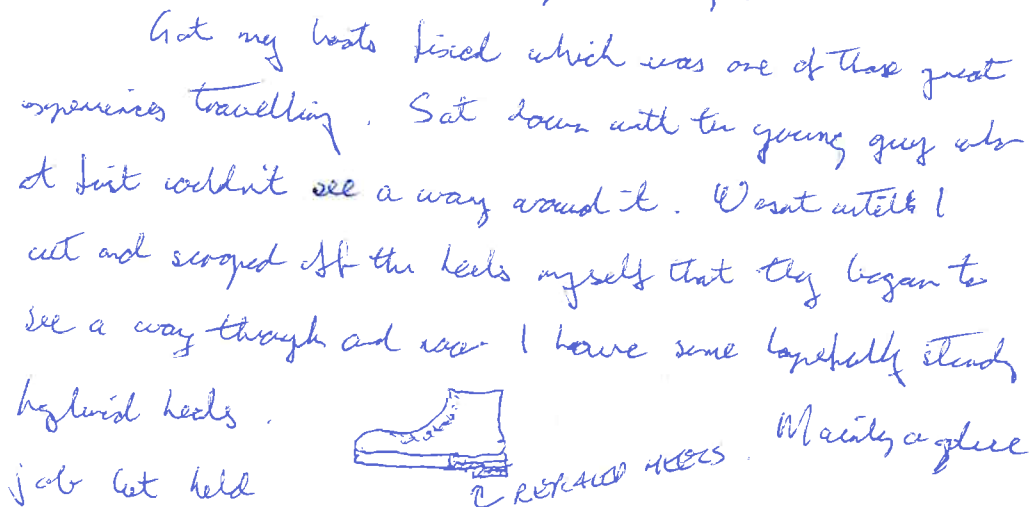 Got my boots fixed which was one of those great
experiences travelling. Sat down with the young guy who
at first couldn't see a way around it. Wasnt untill I
cut and scraped off the heels myself that they began to
see a way through and now I have some hopefully sturdy
hybrid heels. Mainly a glue
job but held
REPLACED HEELS